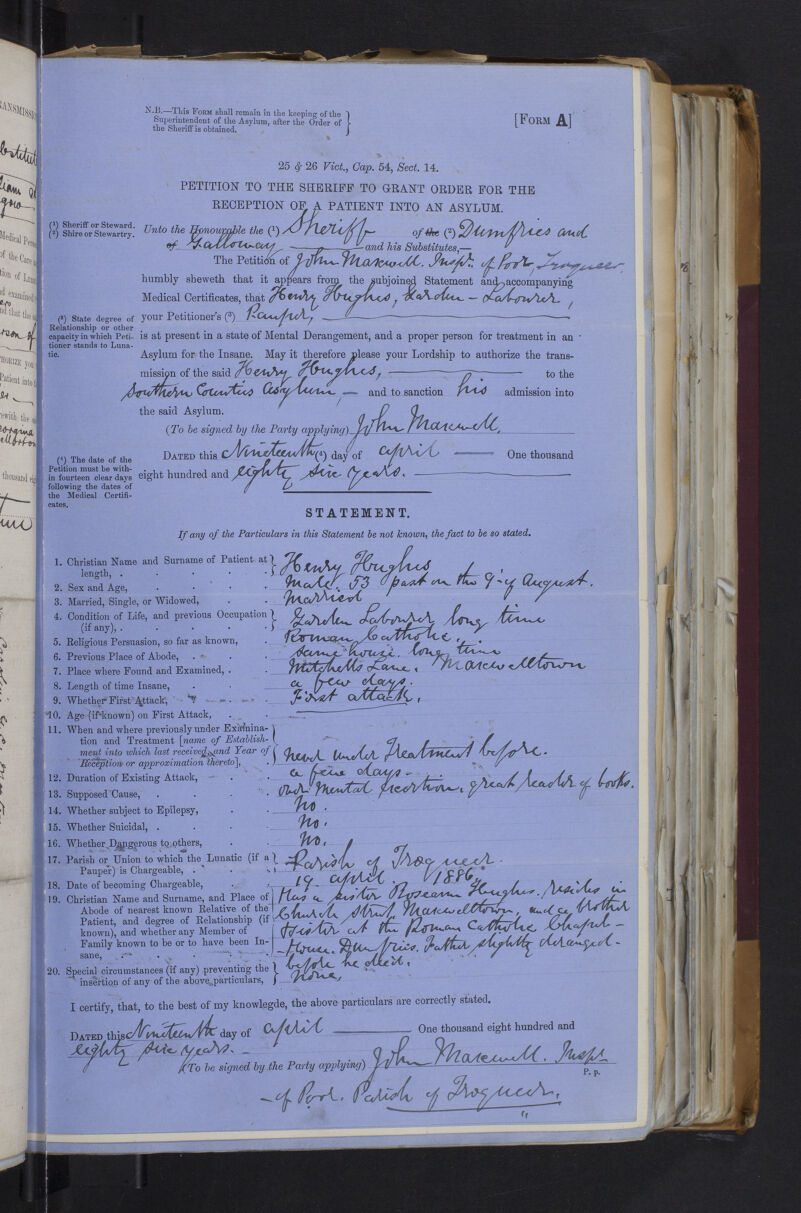 N.B.—This Form shall remain in the keeping of the
Superintendent of the Asylum, after the Order of
the Sheriff is obtained.
[Form A]
25 & 26 Vict., Cap. 54, Sect. 14.
PETITION TO THE SHERIFF TO GRANT ORDER FOR THE
RECEPTION OF A PATIENT INTO AN ASYLUM.
(1) Sheriff or Steward.
(2) Shire or Stewartry.
Unto the Honourable the (1) Sheriff of the (2) Dumfries and
of Galloway and his Substitutes,—
The Petition of John Maxwell. Inspr. of Poor, Troqueer.
humbly sheweth that it appears from the subjoined Statement and accompanying
Medical Certificates, that Henry Hughes, Garden - Labourer,
(3) State degree of
Relationship or other
capacity in which Peti-
tioner stands to Luna-
tic.
your Petitioner's (3) Pauper,
is at present in a state of Mental Derangement, and a proper person for treatment in an
Asylum for the Insane. May it therefore please your Lordship to authorize the trans-
mission of the said Henry Hughes, to the
Southern Counties Asylum, — and to sanction his admission into
the said Asylum.
(To be signed by the Party applying) John Maxwell,
(4) The date of the
Petition must be with-
in fourteen clear days
following the dates of
the Medical Certifi-
cates.
Dated this Nineteenth (4) day of April One thousand
eight hundred and eighty six years.
STATEMENT.
If any of the Particulars in this Statement be not known, the fact to be so stated.
1. Christian Name and Surname of Patient at
length, . Henry Hughes
2. Sex and Age, Male. 53 past on the 9th of August.
3. Married, Single, or Widowed, Married
4. Condition of Life, and previous Occupation
(if any), . Garden Labourer long time
5. Religious Persuasion, so far as known, Roman Catholic.
6. Previous Place of Abode, . same house long time
7. Place where Found and Examined, . Mitchells Lane. Maxwelltown
8. Length of time Insane, a few days.
9. Whether First Attack, First attack.
10. Age (if known) on First Attack,
11. When and where previously under Examina-
tion and Treatment [name of Establish-
ment into which last received, and Year of
Reception or approximation thereto], . never under treatment before.
12. Duration of Existing Attack, a few days -
13. Supposed Cause, . Over Mental exertion, great reader of books.
14. Whether subject to Epilepsy, No.
15. Whether Suicidal, . No.
16. Whether Dangerous to others, No.
17. Parish or Union to which the Lunatic (if a
Pauper) is Chargeable, . Parish of Troqueer.
18. Date of becoming Chargeable, 19 April. 1886,
19. Christian Name and Surname, and Place of
Abode of nearest known Relative of the
Patient, and degree of Relationship (if
known), and whether any Member of
Family known to be or to have been In-
sane, .
Has a sister Roseann Hughes. resides in
Church Street Maxwelltown, and a brother
Sister at the Roman Catholic Chapel -
- House. Dumfries. Father slightly deranged -
before he died.
20. Special circumstances (if any) preventing the
insertion of any of the above particulars, None,
I certify, that, to the best of my knowlegde, the above particulars are correctly stated.
Dated this Nineteenth day of April One thousand eight hundred and
eighty six years. -
(To be signed by the Party applying) John Maxwell. Inspr.
P. p.
- of Poor. Parish of Troqueer.